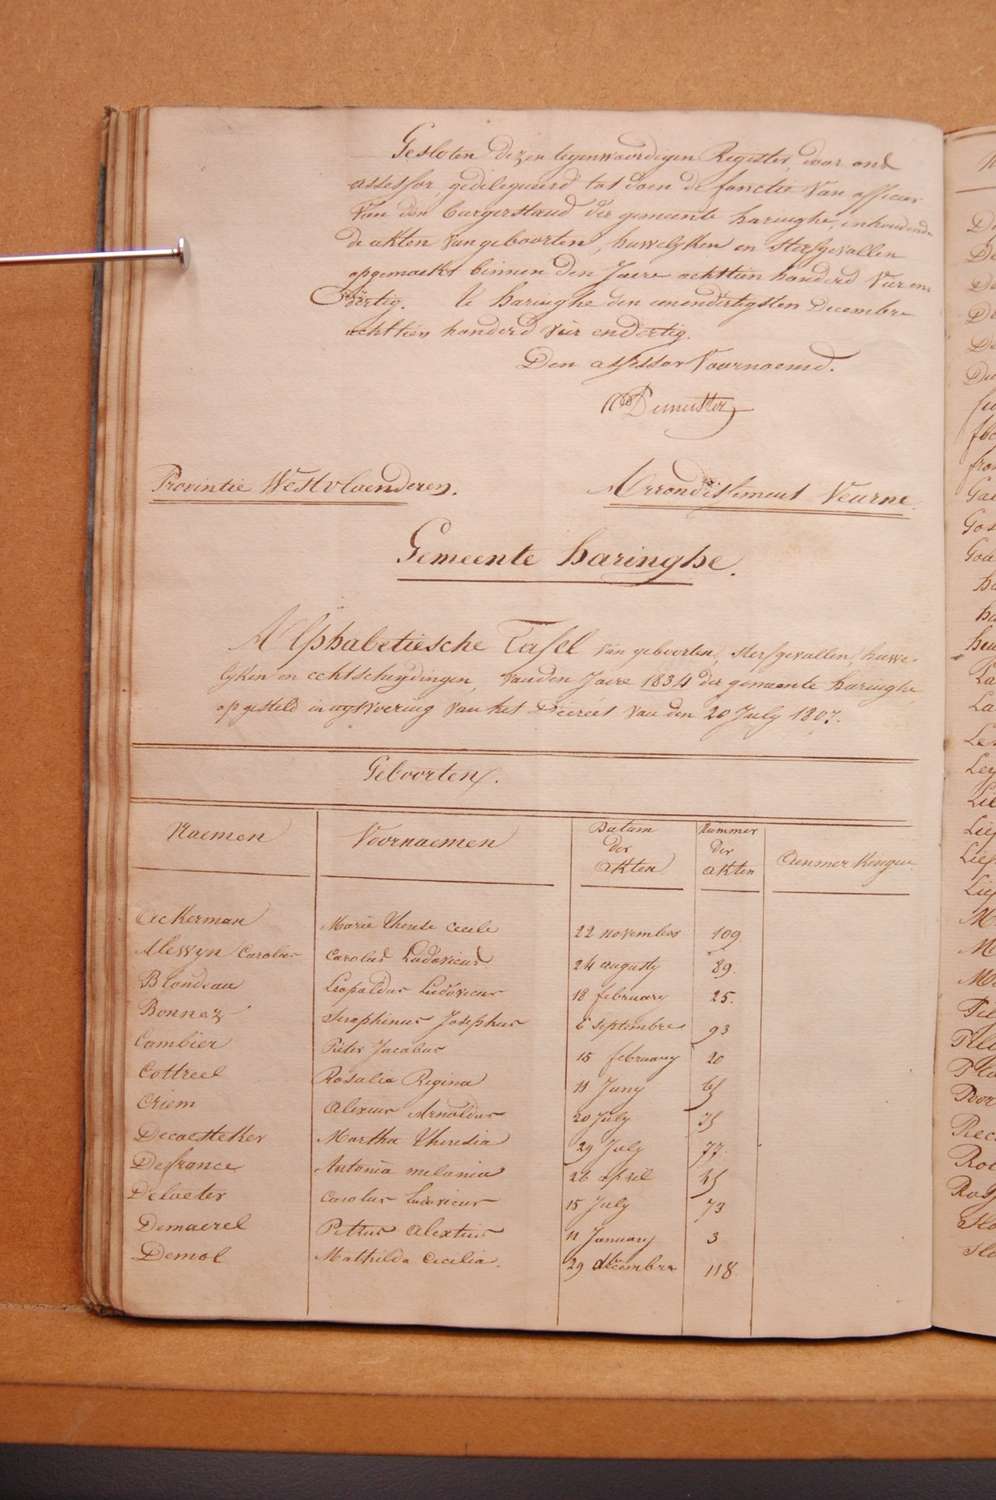 Gesloten dezen tegenwoordigen Register door ons
assessor gedelegueerd tot doen de functie van officier
van den burgerstand der gemeente haringhe, inhoudende
de akten van geboorten, huwelijken en sterfgevallen
opgemaekt binnen den Jaere achttien honderd vier en
dertig. Te haringhe den eenendertigsten Decembre
achttien honderd vier en dertig.
Den assessor Voornoemd.
Provintie Westvlaenderen. Arrondissement Veurne.
Gemeente haringhe.
Alphabetiesche Tafel van geboorten, sterfgevallen, huwe-
lijken en echtscheydingen, van den Jaere 1834 der gemeente haringhe
opgesteld in uytvoering van het Decreet van den 20 July 1807.
Geboorten.
Naemen Voornaemen Datum der akten Nummer der akten Aenmerkingen.
Ackerman Marie Therese Cecile 22 november 109
Alewyn Carolus Carolus Ludovicus 24 augusty 89.
Blondeau Leopoldus Ludovicus 18 february 25.
Bonnez Seraphinus Josephus 6 septembre 93
Cambier Pieter Jacobus 15 february 20
Cottreel Rosalia Regina 11 Juny 65
Criem Alexius Arnoldus 20 July 75
Decaesteker Martha Theresia 29 July 77.
Defrance Antonia melania 26 april 45
Delaeter Carolus Ludovicus 15 July 73
Demaerel Petrus Alextius 11 January 3
Demol Mathilda Cecilia. 29 decembre 118.